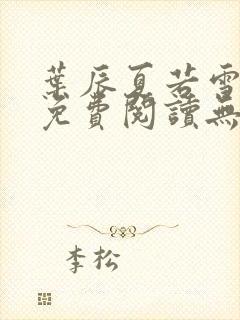 葉辰夏若雪
免費閱讀無
李松